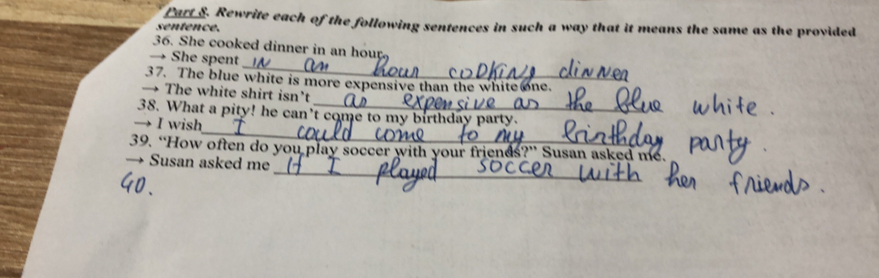 Part 8. Rewrite each of the following sentences in such a way that it means the same as the provided
sentence.
36. She cooked dinner in an hour.
→ She spent in an hour cooking dinner
37. The blue white is more expensive than the white one.
→ The white shirt isn't as expensive as the blue white.
38. What a pity! he can't come to my birthday party.
→ I wish I could come to my birthday party.
39. "How often do you play soccer with your friends?" Susan asked me.
→ Susan asked me if I played soccer with her friends.
40.